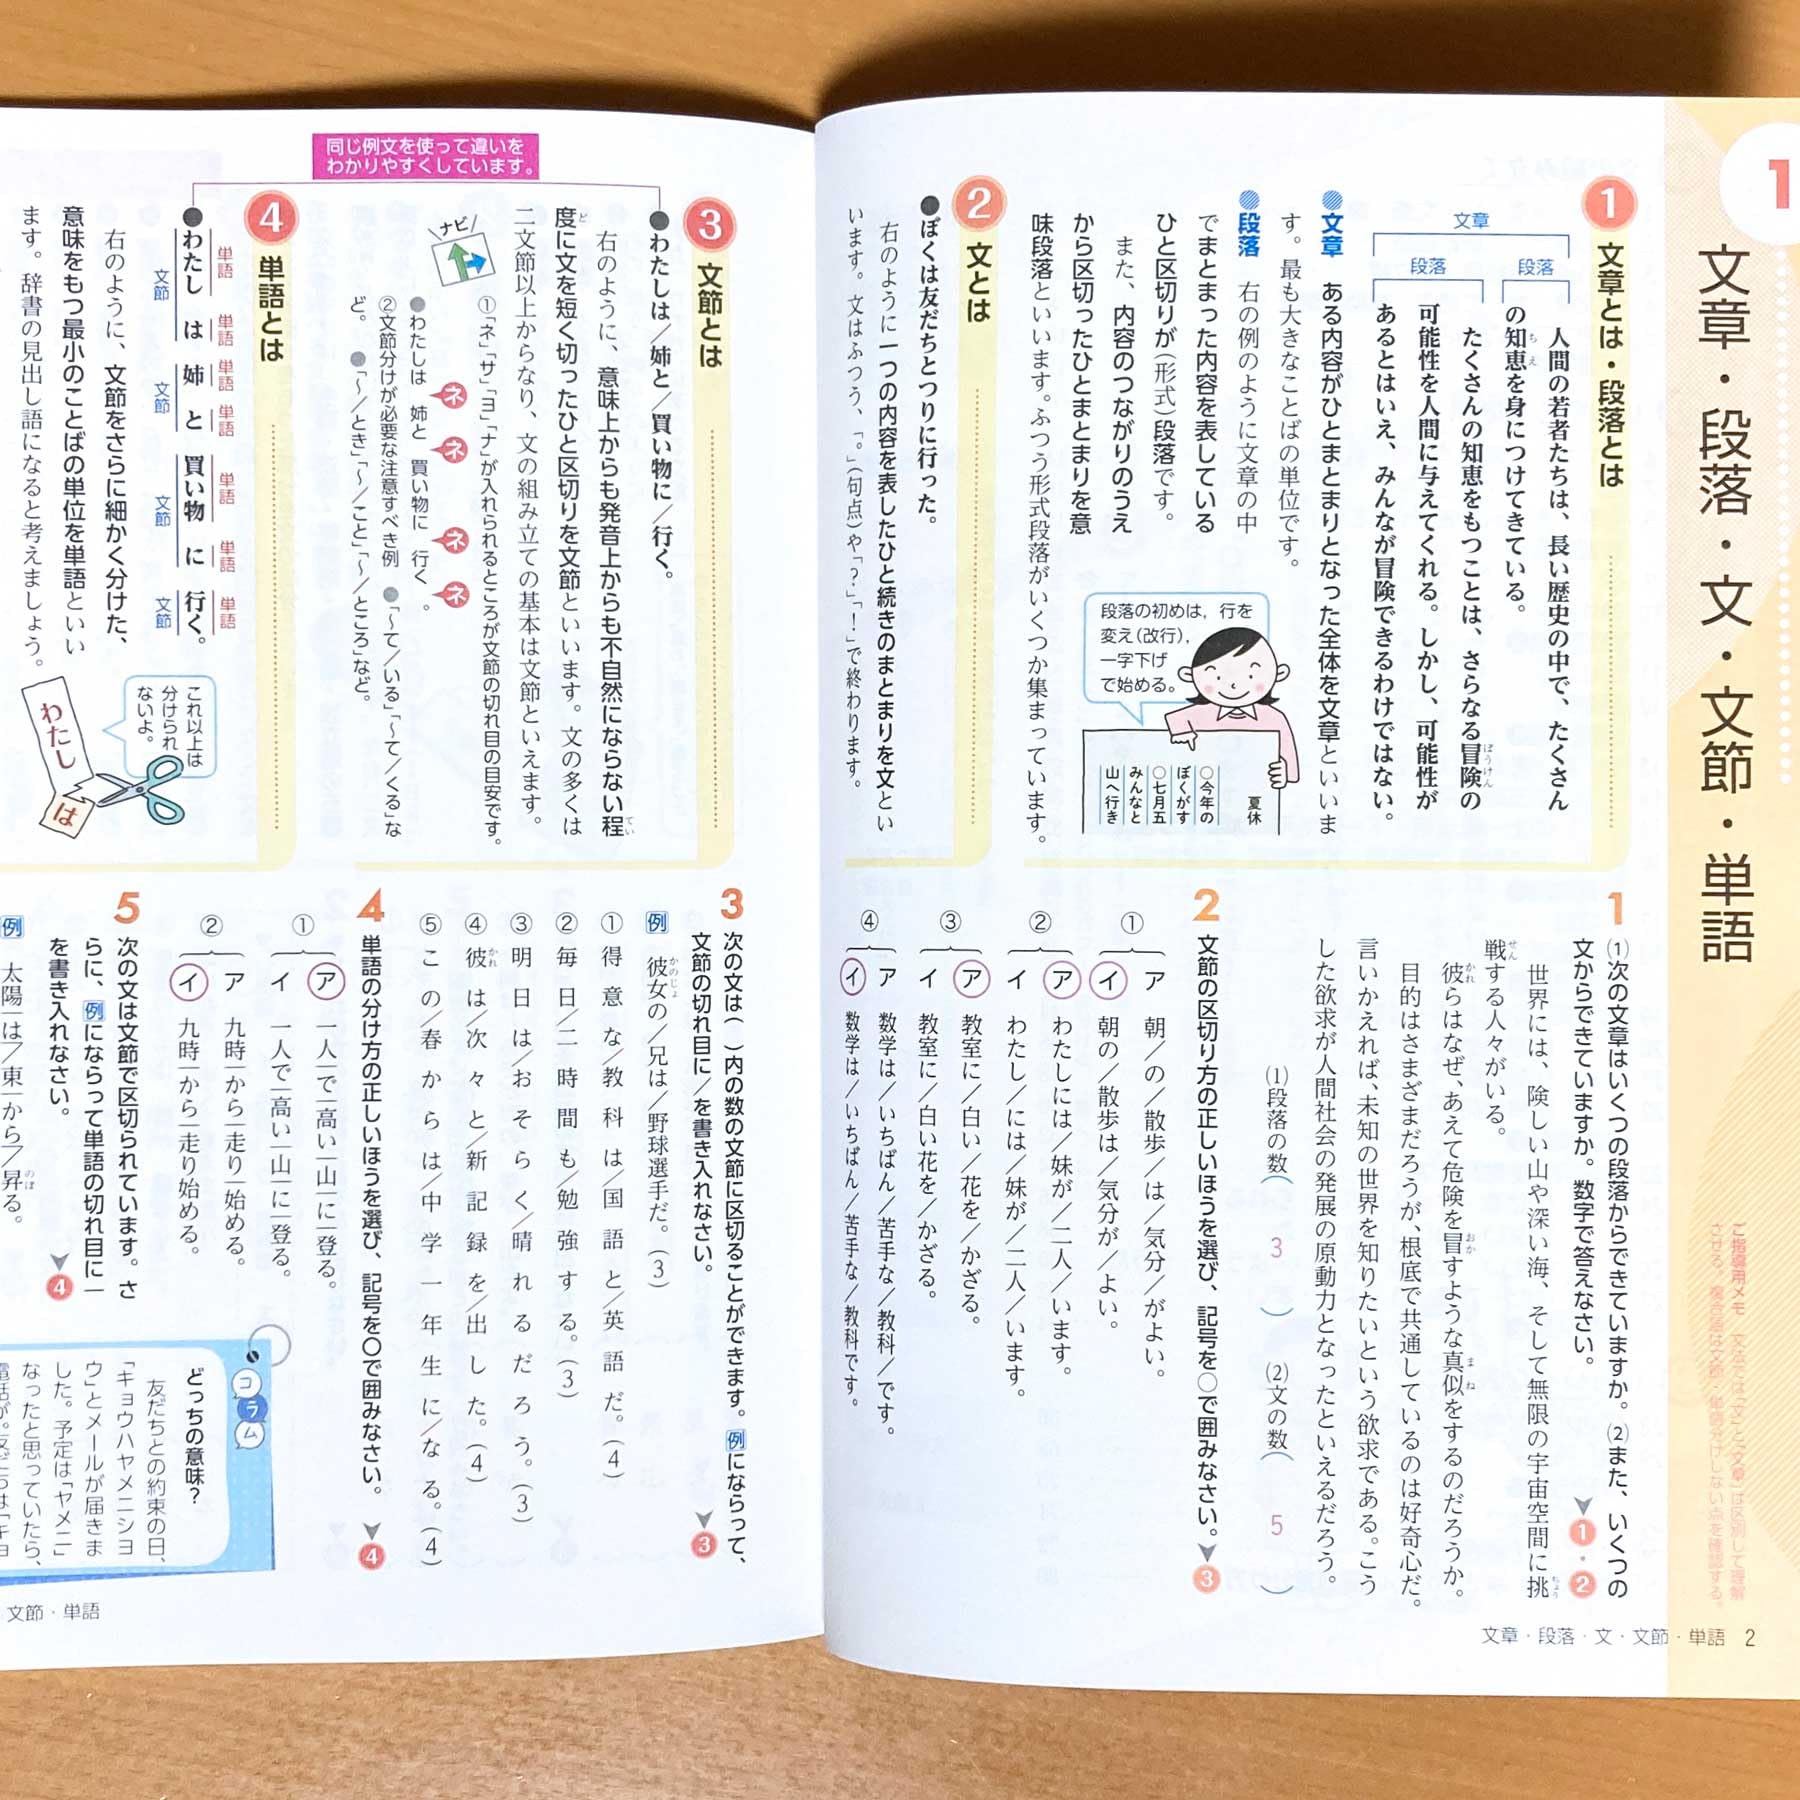 1
文章・段落・文・文節・単語
ご指導用メモ 文法では「文」と「文章」は区別して理解
させる。複合語は文節・単語分けしない点を確認する。
1 文章とは・段落とは
文章
段落
段落
人間の若者たちは、長い歴史の中で、たくさん
の知恵を身につけてきている。
ちえ
たくさんの知恵をもつことは、さらなる冒険の
ぼうけん
可能性を人間に与えてくれる。しかし、可能性が
あるとはいえ、みんなが冒険できるわけではない。
文章 ある内容がひとまとまりとなった全体を文章といいま
す。最も大きなことばの単位です。
段落 右の例のように文章の中
でまとまった内容を表している
ひと区切りが(形式)段落です。
また、内容のつながりのうえ
から区切ったひとまとまりを意
味段落といいます。ふつう形式段落がいくつか集まっています。
段落の初めは，行を
変え(改行)，
一字下げ
で始める。
夏休
○今年の
ぼくがす
○七月五
みんなと
山へ行き
2 文とは
●ぼくは友だちとつりに行った。
右のように一つの内容を表したひと続きのまとまりを文とい
います。文はふつう、「。」(句点)や「？」「！」で終わります。
1 ⑴次の文章はいくつの段落からできていますか。⑵また、いくつの
文からできていますか。数字で答えなさい。 1・2
世界には、険しい山や深い海、そして無限の宇宙空間に挑
ちょう
戦する人々がいる。
せん
彼らはなぜ、あえて危険を冒すような真似をするのだろうか。
かれ おか まね
目的はさまざまだろうが、根底で共通しているのは好奇心だ。
言いかえれば、未知の世界を知りたいという欲求である。こう
した欲求が人間社会の発展の原動力となったといえるだろう。
⑴段落の数( 3 ) ⑵文の数( 5 )
2 文節の区切り方の正しいほうを選び、記号を○で囲みなさい。 3
① ア 朝／の／散歩／は／気分／がよい。
イ 朝の／散歩は／気分が／よい。
② ア わたしには／妹が／二人／います。
イ わたし／には／妹が／二人／います。
③ ア 教室に／白い／花を／かざる。
イ 教室に／白い花を／かざる。
④ ア 数学は／いちばん／苦手な／教科／です。
イ 数学は／いちばん／苦手な／教科です。
文章・段落・文・文節・単語 2
同じ例文を使って違いを
わかりやすくしています。
3 文節とは
●わたしは／姉と／買い物に／行く。
右のように、意味上からも発音上からも不自然にならない程
てい
度に文を短く切ったひと区切りを文節といいます。文の多くは
ど
二文節以上からなり、文の組み立ての基本は文節といえます。
ナビ
①「ネ」「サ」「ヨ」「ナ」が入れられるところが文節の切れ目の目安です。
●わたしは ネ 姉と ネ 買い物に ネ 行く ネ。
②文節分けが必要な注意すべき例 ●「～て／いる」「～て／くる」な
ど。 ●「～／とき」「～／こと」「～／ところ」など。
4 単語とは
単語 単語 単語 単語 単語 単語 単語
●わたし は 姉 と 買い物 に 行く。
文節 文節 文節 文節
右のように、文節をさらに細かく分けた、
意味をもつ最小のことばの単位を単語といい
ます。辞書の見出し語になると考えましょう。
これ以上は
分けられ
ないよ。
わたし
は
3 次の文は( )内の数の文節に区切ることができます。例にならって、
文節の切れ目に／を書き入れなさい。 3
例 彼女の／兄は／野球選手だ。(3)
かのじょ
① 得意な／教科は／国語と／英語だ。(4)
② 毎日／二時間も／勉強する。(3)
③ 明日は／おそらく／晴れるだろう。(3)
④ 彼は／次々と／新記録を／出した。(4)
かれ
⑤ この／春からは／中学一年生に／なる。(4)
4 単語の分け方の正しいほうを選び、記号を○で囲みなさい。 4
① ア 一人｜で｜高い｜山｜に｜登る。
イ 一人で｜高い｜山｜に｜登る。
② ア 九時｜から｜走り｜始める。
イ 九時｜から｜走り始める。
5 次の文は文節で区切られています。さ
らに、例にならって単語の切れ目に｜
を書き入れなさい。 4
例 太陽｜は／東｜から／昇る。
のぼ
コラム
どっちの意味?
友だちとの約束の日、
「キョウハヤメニショ
ウ」とメールが届きま
した。予定は「ヤメニ」
なったと思っていたら、
文節・単語